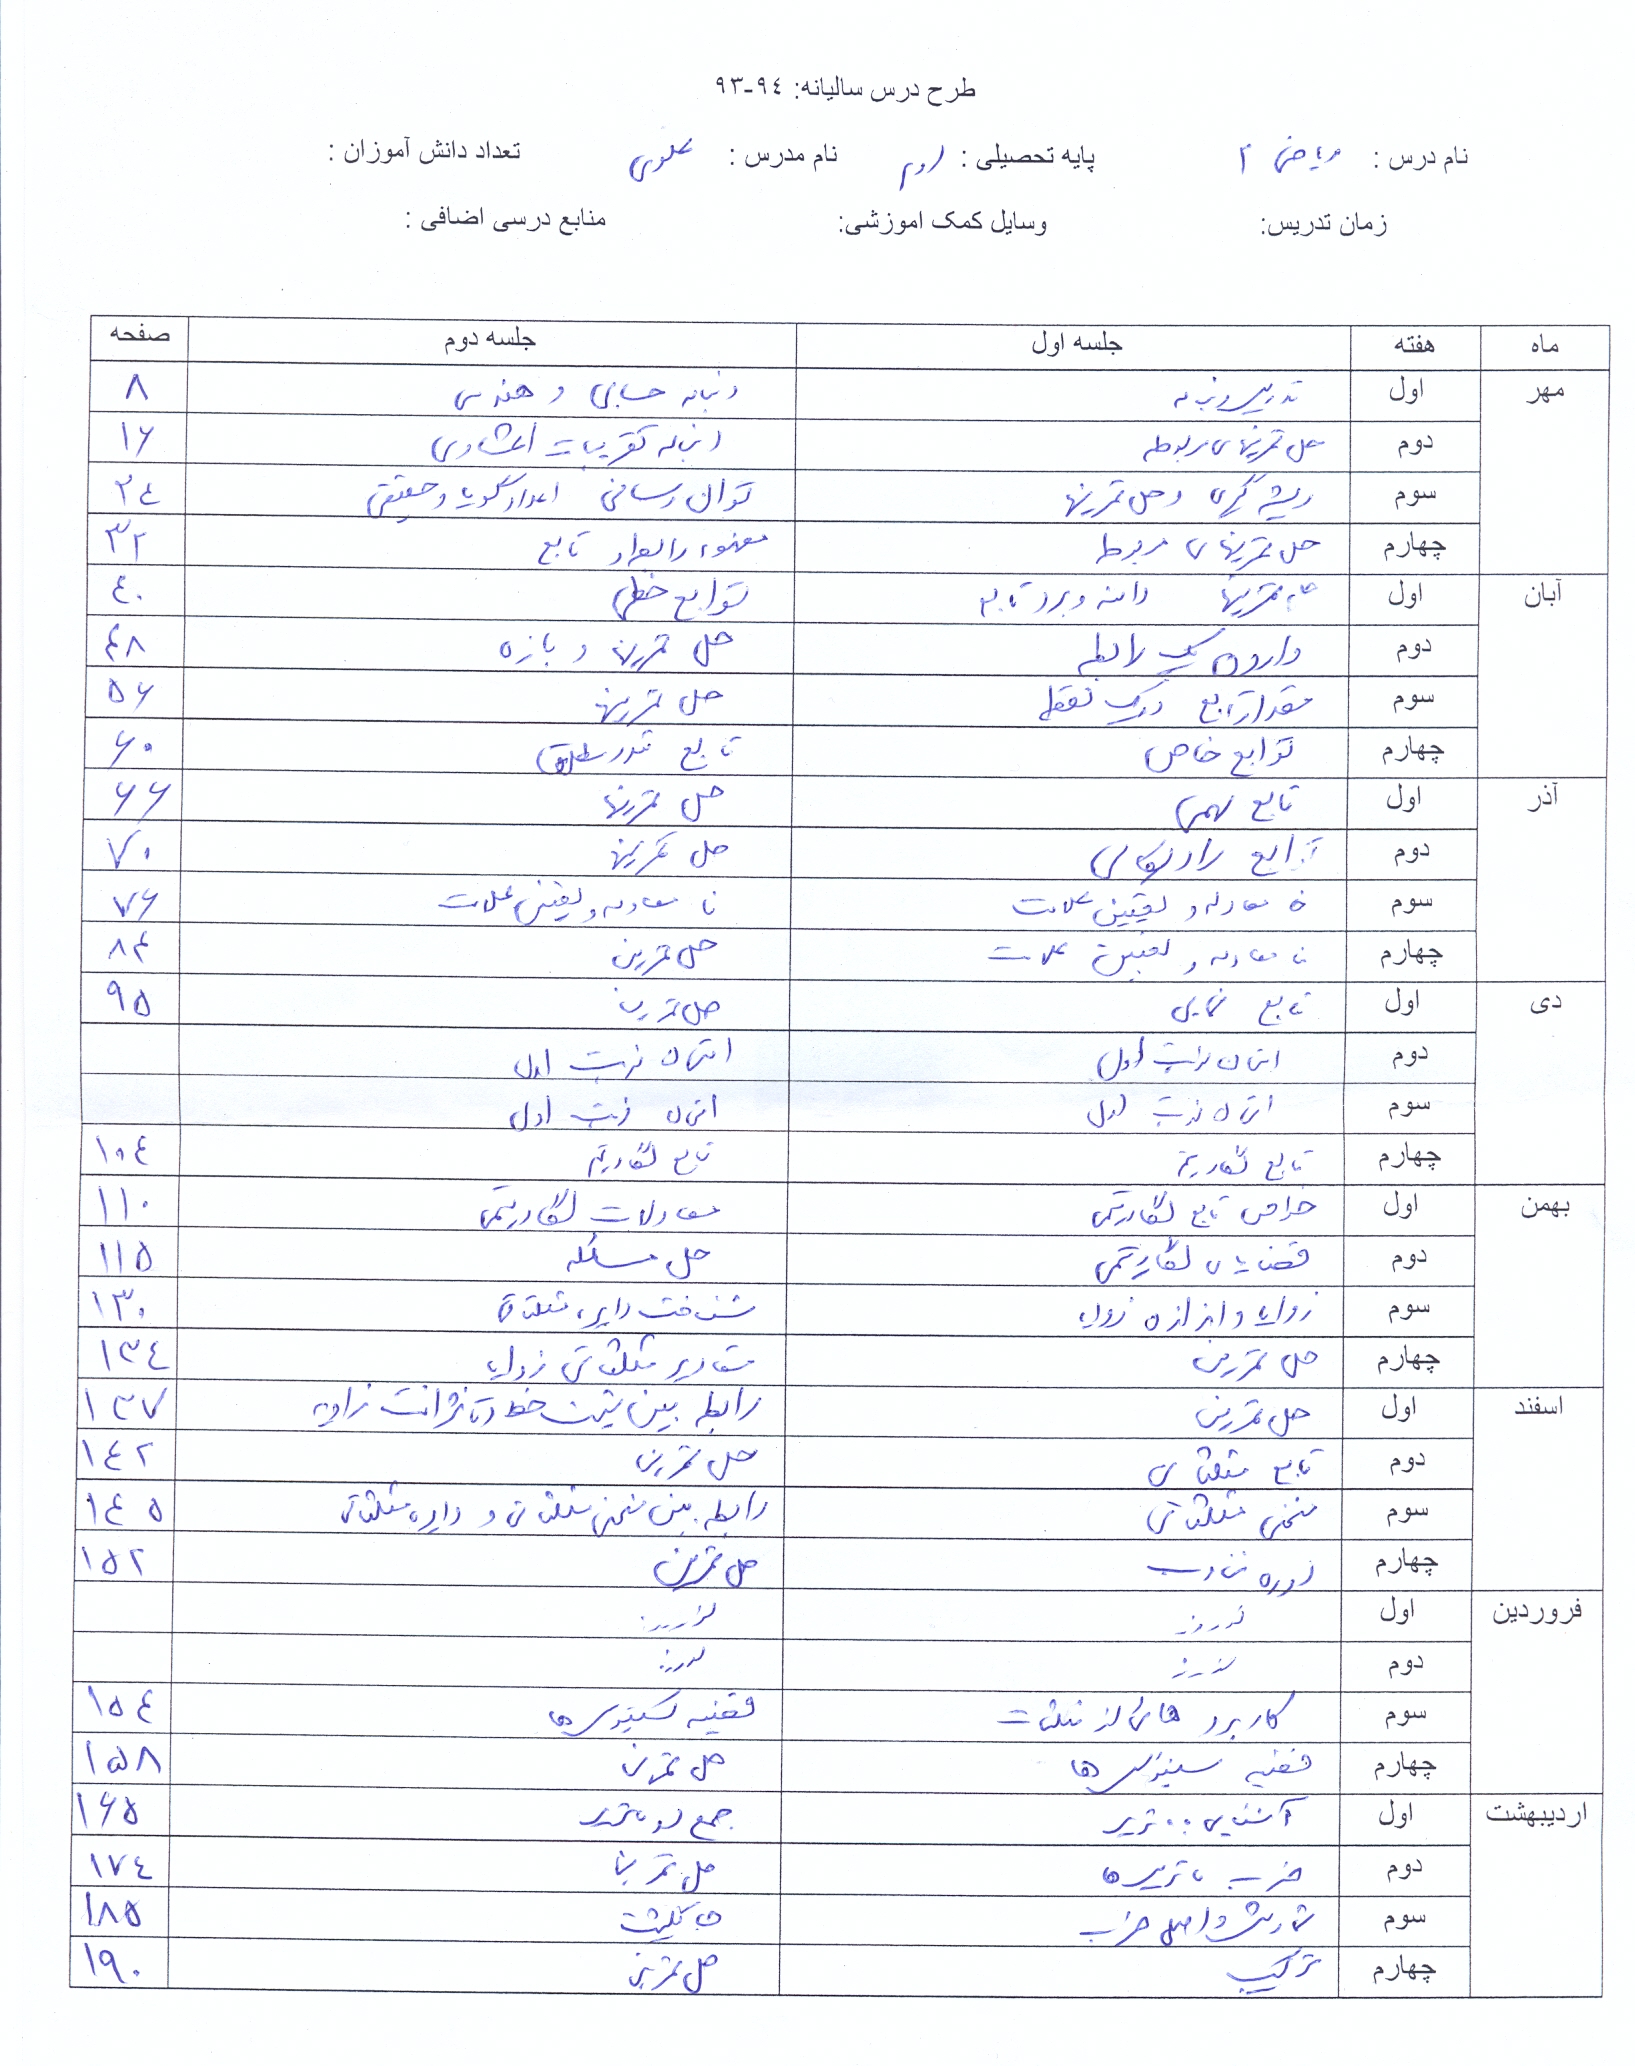 طرح درس سالیانه: ۹۴-۹۳
نام درس : ریاضی ۲ پایه تحصیلی : دوم نام مدرس : علوی تعداد دانش آموزان :
زمان تدریس: وسایل کمک اموزشی: منابع درسی اضافی :
ماه هفته جلسه اول جلسه دوم صفحه
مهر اول تدریس دنباله دنباله حسابی و هندسی ۸
دوم حل تمرینهای مربوطه دنباله تقریبات اعشاری ۱۶
سوم ریشه گیری و حل تمرینها توان رسانی اعداد گویا و حقیقی ۲۴
چهارم حل تمرینهای مربوط تابع ۳۲
آبان اول تمرینها دامنه و برد تابع توابع خطی ۴۰
دوم وارون یک رابطه حل تمرین و بازه ۴۸
سوم مقدار تابع در یک نقطه حل تمرینها ۵۶
چهارم توابع خاص تابع قدر مطلق ۶۰
آذر اول تابع سهمی حل تمرینها ۶۶
دوم توابع رادیکالی حل تمرینها ۷۰
سوم نا معادله و تعیین علامت نا معادله و تعیین علامت ۷۶
چهارم نا معادله و تعیین علامت حل تمرین ۸۴
دی اول تابع نمایی حل تمرین ۹۵
دوم امتحان نوبت اول امتحان نوبت اول
سوم امتحان نوبت اول امتحان نوبت اول
چهارم تابع لگاریتم تابع لگاریتم ۱۰۴
بهمن اول خواص تابع لگاریتمی معادلات لگاریتمی ۱۱۰
دوم قضایای لگاریتمی حل مسئله ۱۱۵
سوم زوایا و اندازه زوایا شناخت دایره مثلثاتی ۱۳۰
چهارم حل تمرین مقادیر مثلثاتی زوایا ۱۳۴
اسفند اول حل تمرین رابطه بین شیب خط و تانژانت زاویه ۱۳۷
دوم تابع مثلثاتی حل تمرین ۱۴۲
سوم منحنی مثلثاتی رابطه بین منحنی مثلثاتی و دایره مثلثاتی ۱۴۵
چهارم دوره تناوب حل تمرین ۱۵۲
فروردین اول نوروز نوروز
دوم نوروز نوروز
سوم کاربرد هائی از مثلثات قضیه کسینوس ها ۱۵۴
چهارم قضیه سینوس ها حل تمرین ۱۵۸
اردیبهشت اول آشنایی با ماتریس جمع دو ماتریس ۱۶۵
دوم ضرب ماتریس ها حل تمرینها ۱۷۴
سوم شمارش و اصل ضرب جایگشت ۱۸۵
چهارم ترکیب حل تمرین ۱۹۰